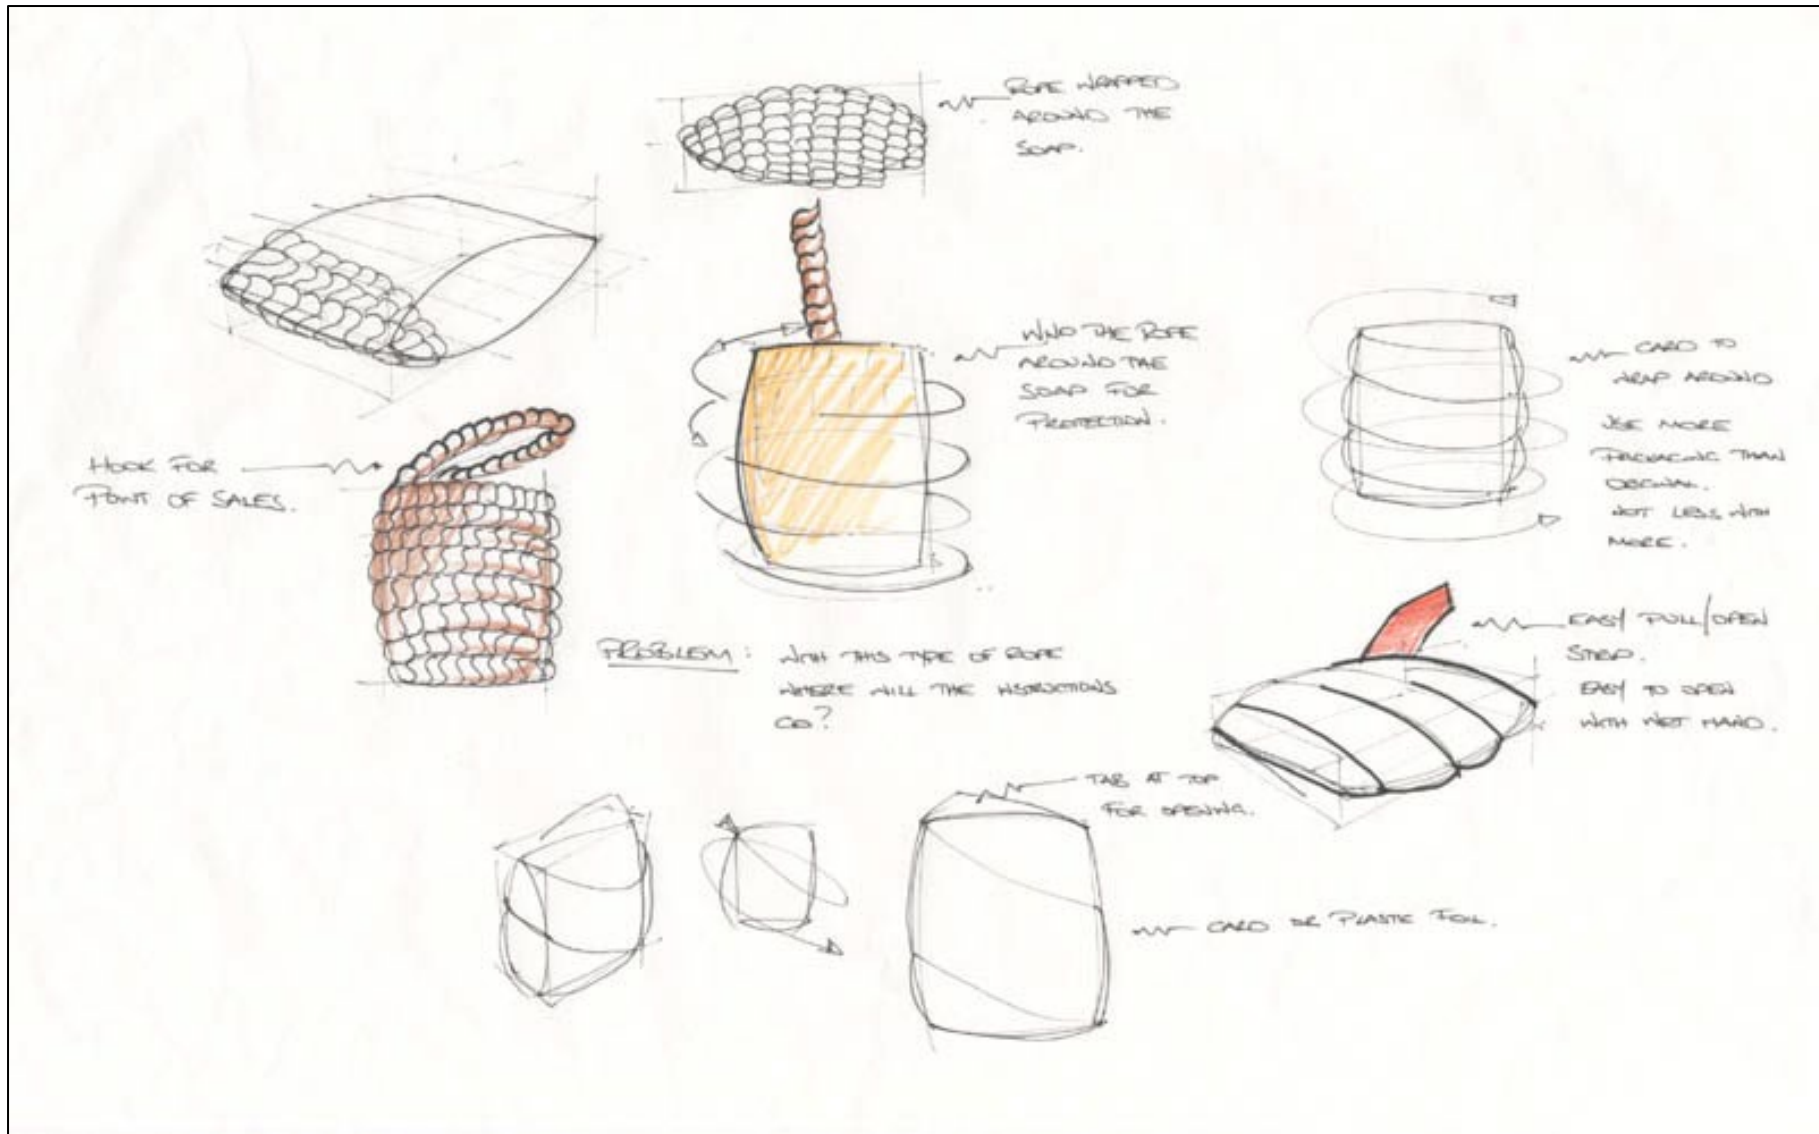 ROPE WRAPPED
AROUND THE
SOAP.
WIND THE ROPE
AROUND THE
SOAP FOR
PROTECTION.
CARD TO
WRAP AROUND
USE MORE
PACKAGING THAN
ORIGINAL.
NOT LESS WITH
MORE.
HOOK FOR
POINT OF SALES.
PROBLEM: WITH THIS TYPE OF ROPE
WHERE WILL THE INSTRUCTIONS
GO?
EASY PULL/OPEN
STRAP.
EASY TO OPEN
WITH WET HAND.
TAB AT TOP
FOR OPENING.
CARD OR PLASTIC FOIL.